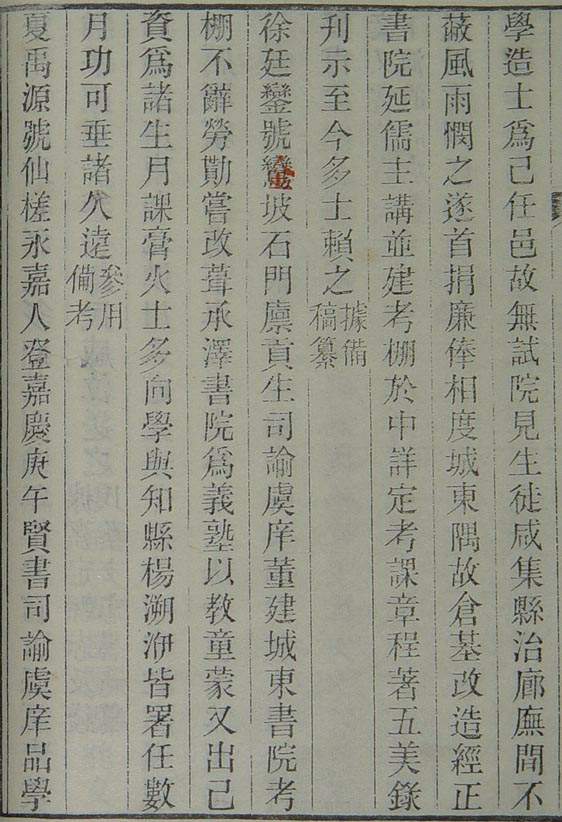 學造士爲己任邑故無試院見生徒咸集縣治廊廡間不
蔽風雨憫之遂首捐廉俸相度城東隅故倉基改造經正
書院延儒主講並建考棚於中詳定考課章程著五美錄
刊示至今多士賴之據備稿纂
徐廷鑾號坡石門廩貢生司諭虞庠董建城東書院考
棚不辭勞勩嘗改葺承澤書院爲義塾以教童蒙又出己
資爲諸生月課膏火士多向學與知縣楊溯洢皆署任數
月功可垂諸久遠參用備考
夏禹源號仙槎永嘉人登嘉慶庚午賢書司諭虞庠品學